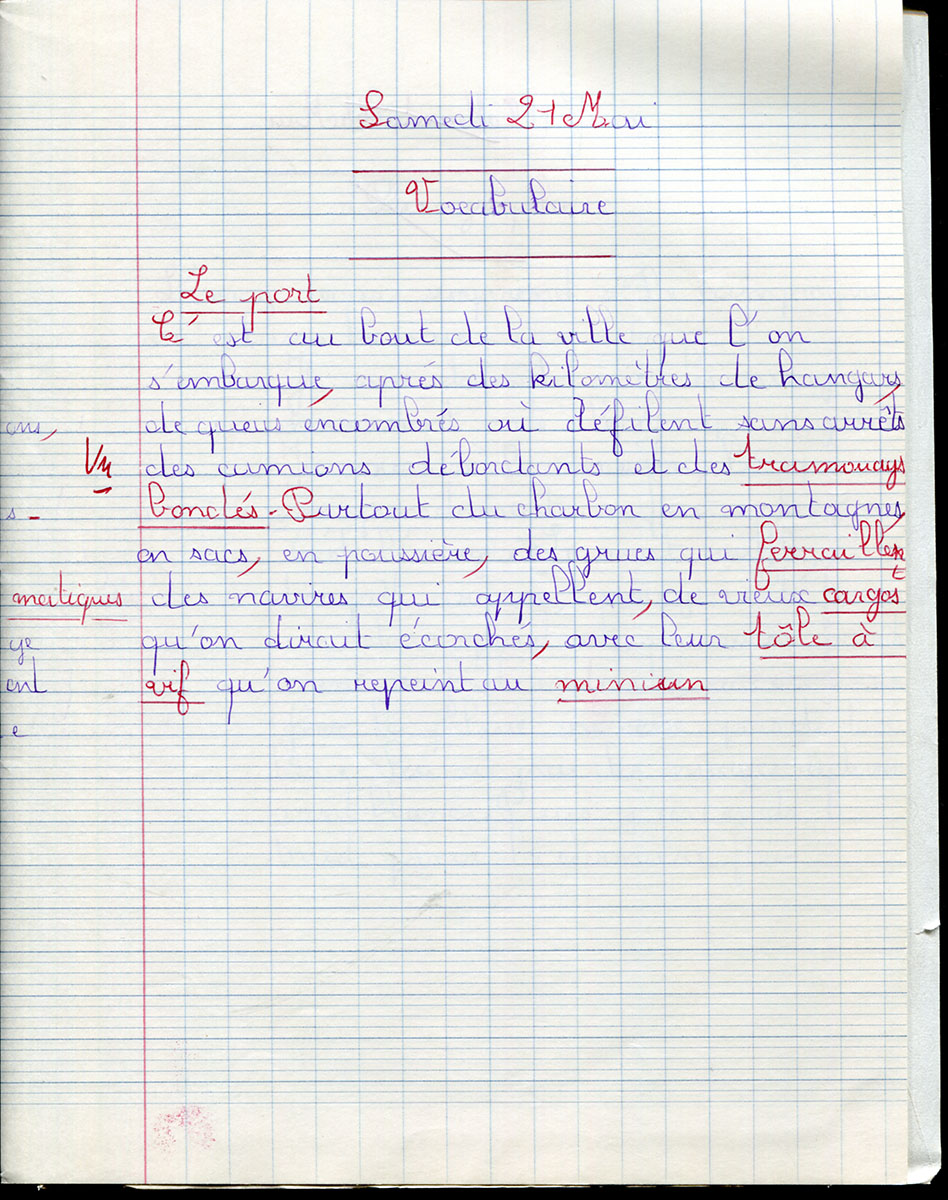 Samedi 21 Mai
Vocabulaire
Le port
C'est au bout de la ville que l'on
s'embarque, aprés des kilomètres de hangars,
de quais encombrés où défilent sans arrêts
des camions débordants et des tramouays
bondés. Partout du charbon en montagnes,
en sacs, en poussière, des grues qui ferraillent
des navires qui appellent, de vieux cargos
qu'on dirait écorchés, avec leur tôle à
vif qu'on repeint au minium
ons,
Vu
s -
matiques
ge
ent
e